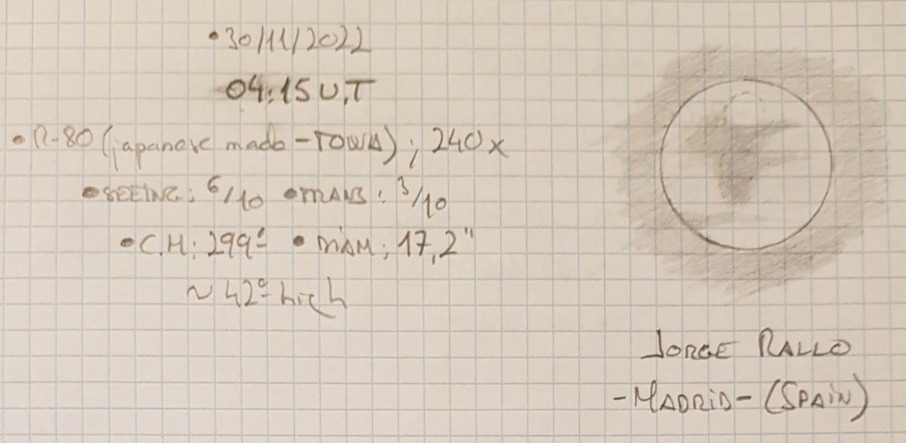 •30/11/2022
04:15 U.T
•R-80 (japanese made-TOWA); 240x
•SEEING: 6/10 •TRANS: 3/10
•C.M: 299º •DIAM: 17,2"
~ 42º high
JORGE RALLO
-MADRID- (SPAIN)